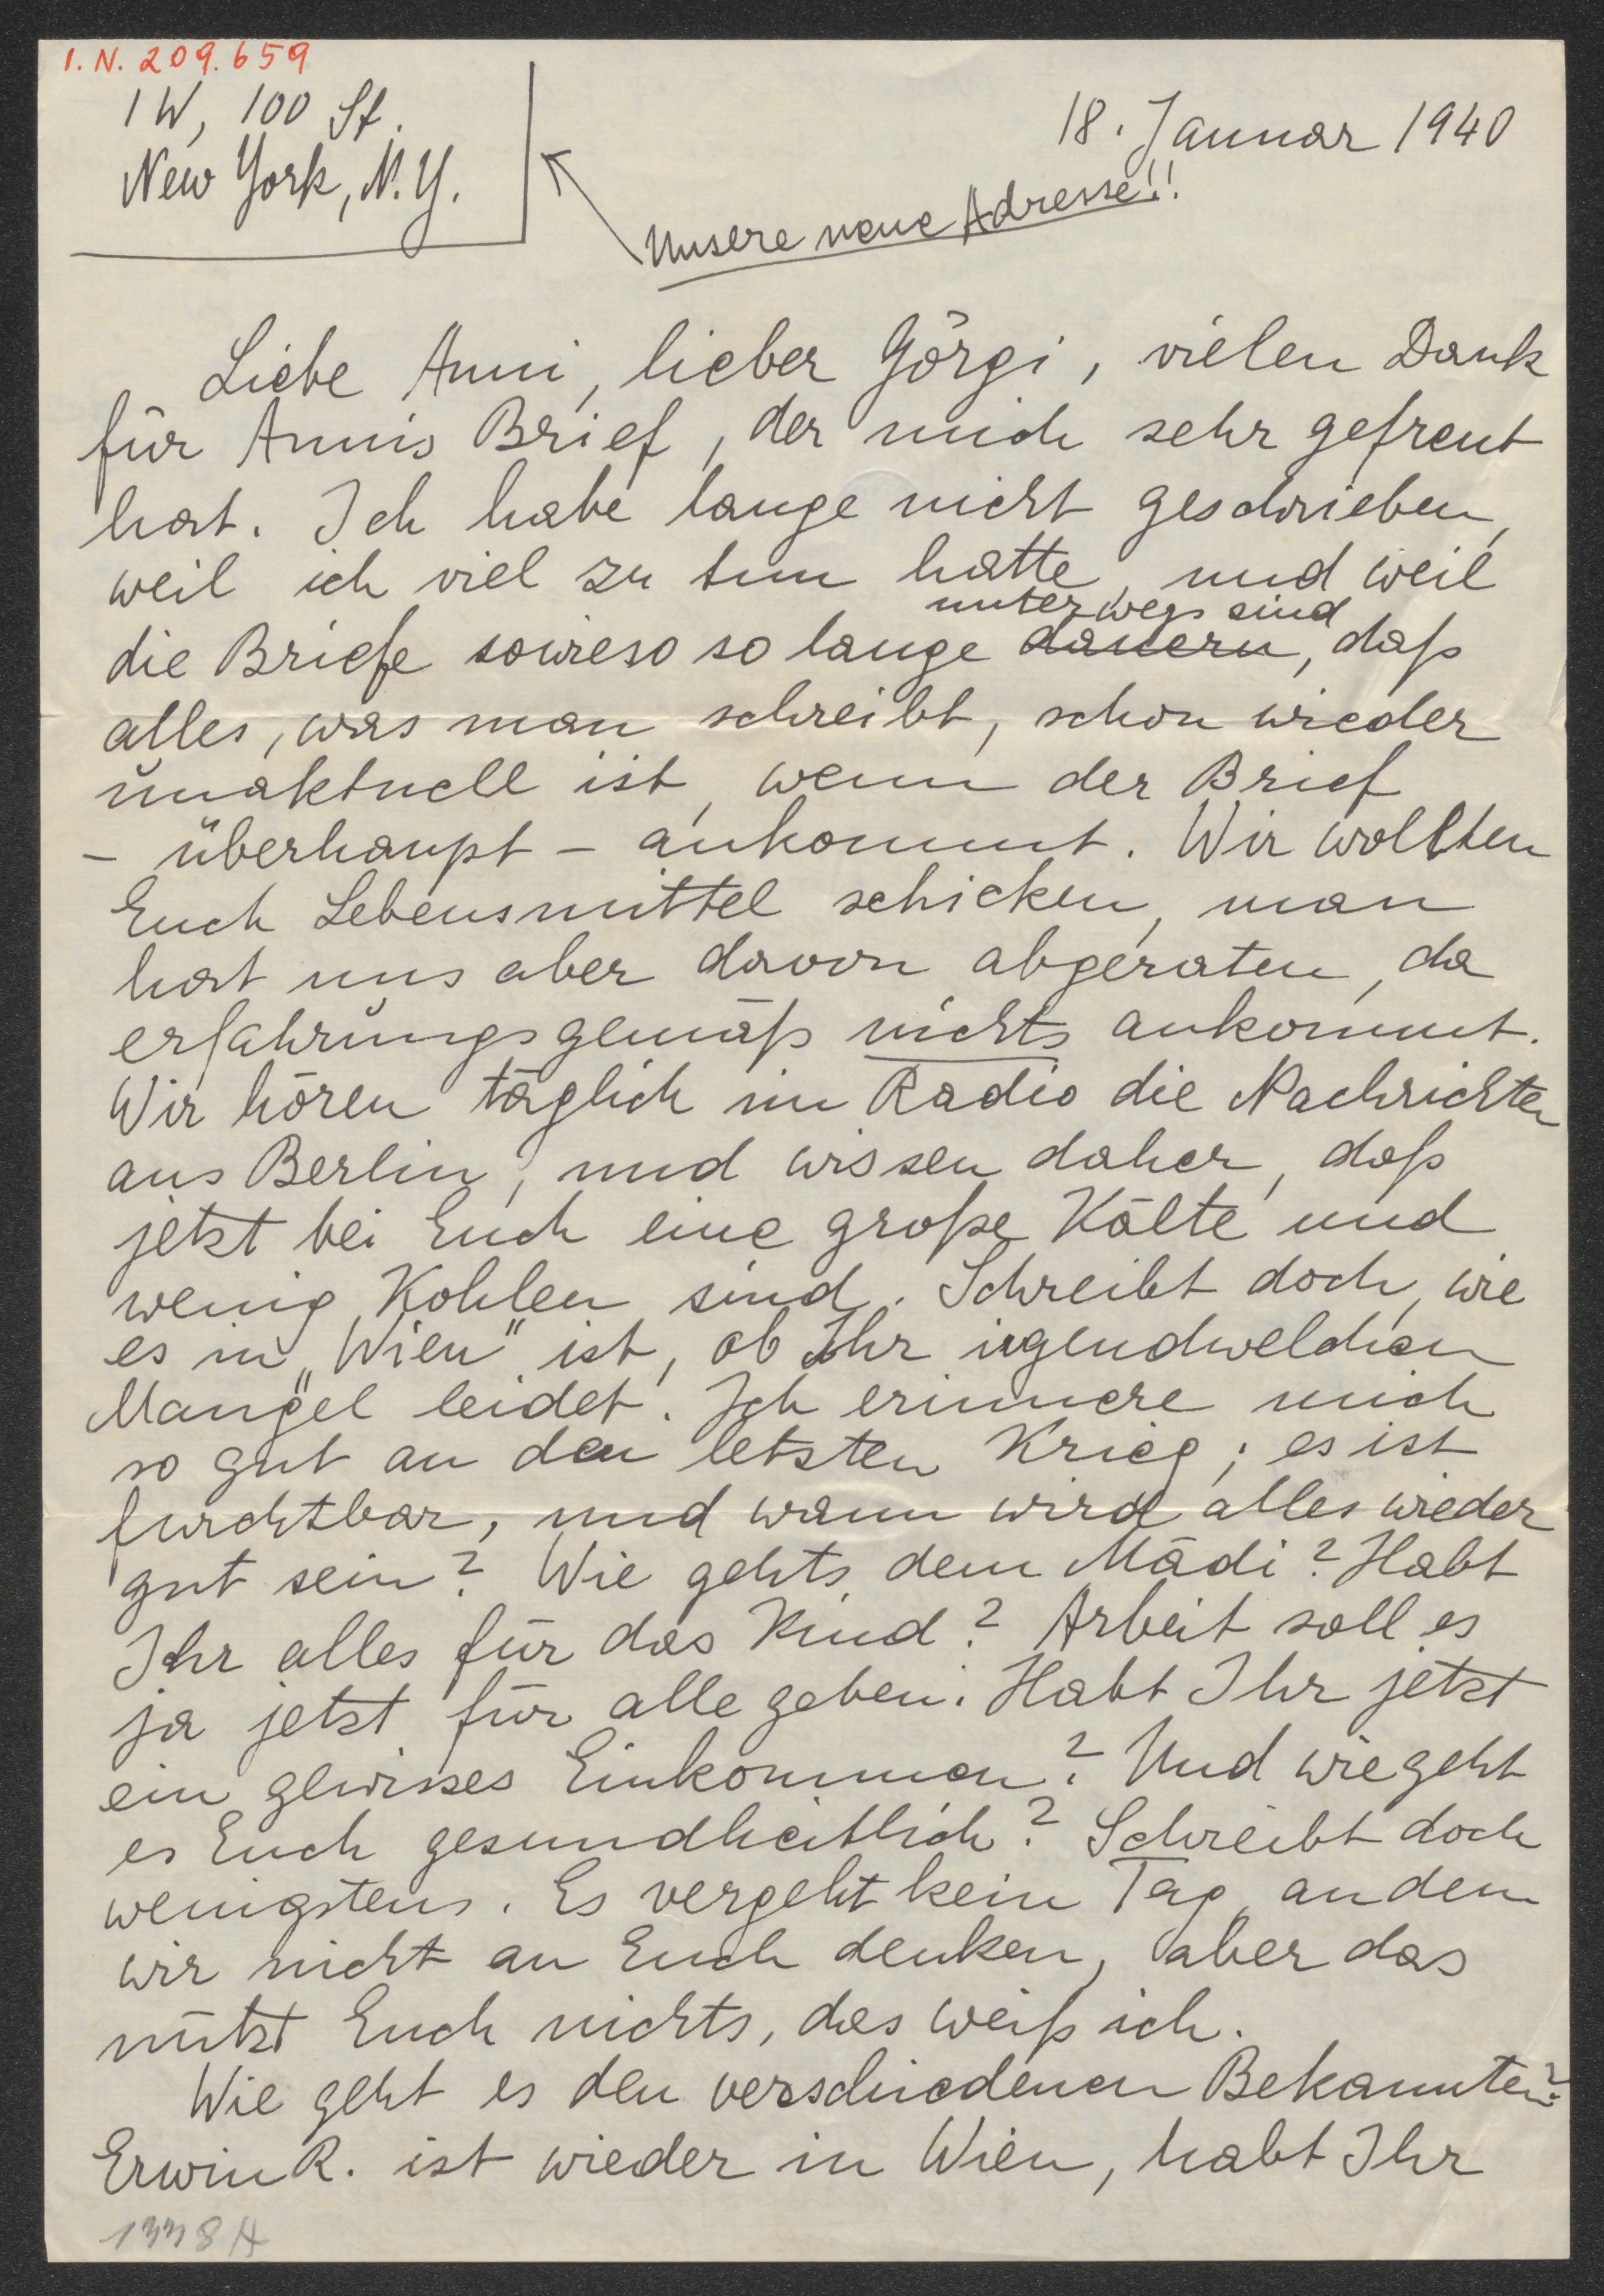 I.N. 209.659
1 W, 100 St.
New York, N.Y.
18. Januar 1940
Unsere neue Adresse!!
Liebe Anni, lieber Görgi, vielen Dank
für Annis Brief, der mich sehr gefreut
hat. Ich habe lange nicht geschrieben,
weil ich viel zu tun hatte, und weil
unterwegs sind
die Briefe sowieso so lange dauern, daß
alles, was man schreibt, schon wieder
unaktuell ist, wenn der Brief
– überhaupt – ankommt. Wir wollten
Euch Lebensmittel schicken, man
hat uns aber davon abgeraten, da
erfahrungsgemäß nichts ankommt.
Wir hören täglich im Radio die Nachrichten
aus Berlin, und wissen daher, daß
jetzt bei Euch eine große Kälte und
wenig Kohlen sind. Schreibt doch, wie
es in „Wien" ist, ob Ihr irgendwelchen
Mangel leidet. Ich erinnere mich
so gut an den letzten Krieg; es ist
furchtbar, und wann wird alles wieder
gut sein? Wie gehts dem Mädi? Habt
Ihr alles für das Kind? Arbeit soll es
ja jetzt für alle geben. Habt Ihr jetzt
ein gewisses Einkommen? Und wie geht
es Euch gesundheitlich? Schreibt doch
wenigstens. Es vergeht kein Tag, an dem
wir nicht an Euch denken, aber das
nützt Euch nichts, das weiß ich.
Wie geht es den verschiedenen Bekannten?
Erwin R. ist wieder in Wien, habt Ihr
1338A